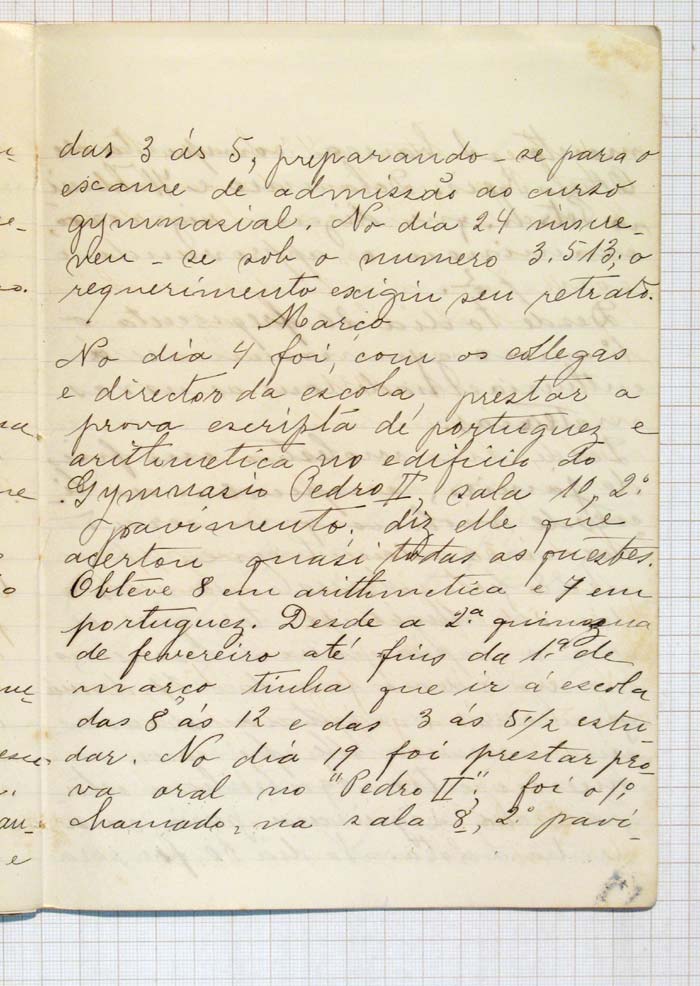 das 3 ás 5, preparando-se para o
escame de admissão ao curso
gymnasial. No dia 24 inscre-
veu-se sob o numero 3.513; o
requerimento exigiu seu retrato.
Março
No dia 4 foi, com os collegas
e director da escola, prestar a
prova escripta de portuguez e
arithmetica no edificio do
Gymnasio Pedro II, sala 10, 2.º
pavimento; diz elle que
acertou quasi todas as questões.
Obteve 8 em arithmetica e 7 em
portuguez. Desde a 2.ª quinzena
de fevereiro até fins da 1.ª de
março tinha que ir á escola
das 8 ás 12 e das 3 ás 5 1/2 estu-
dar. No dia 19 foi prestar pro-
va oral no "Pedro II"; foi o 1.º
chamado, na sala 8, 2.º pavi-